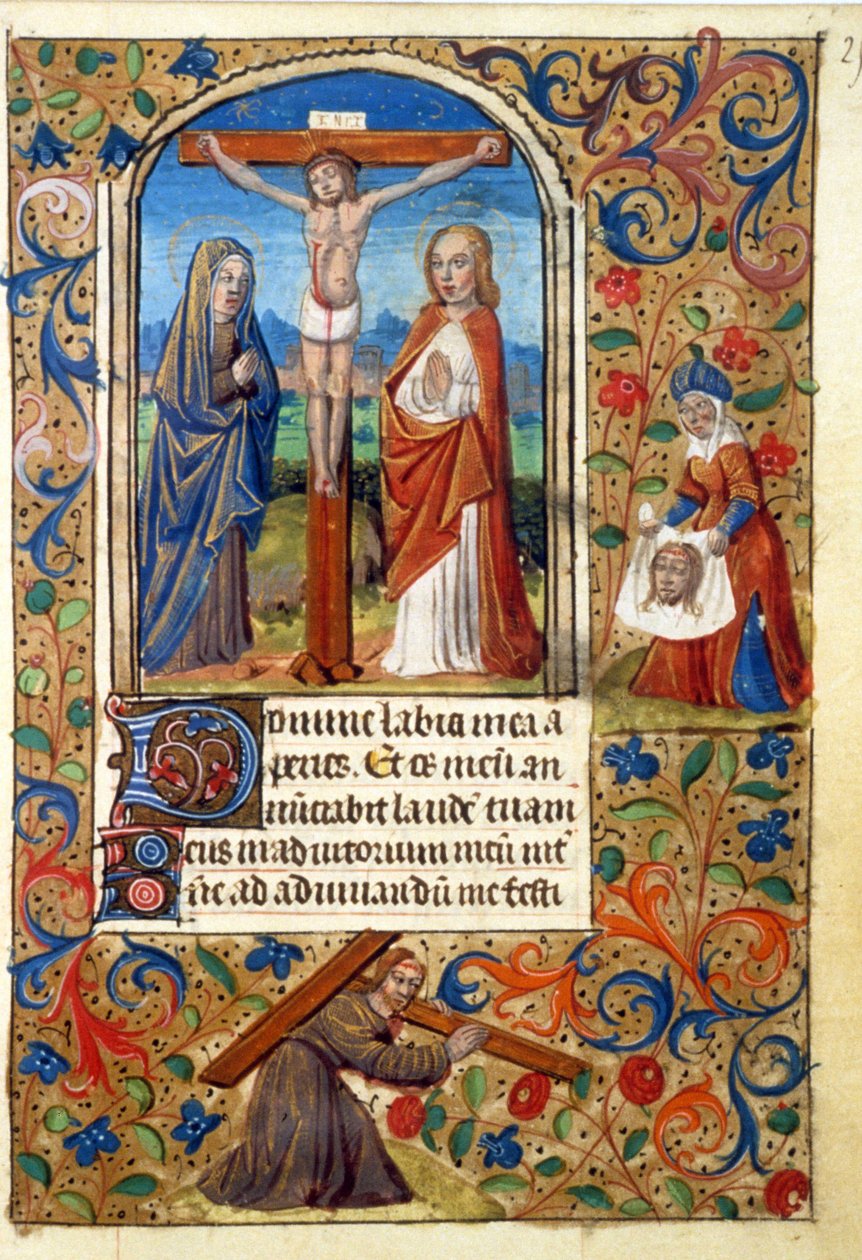 INRI
Domine labia mea a
peries. Et os meū an
nūciabit laudē tuam
Deus in adiutorium meū int̄
n̄e ad adiuuandū me festi